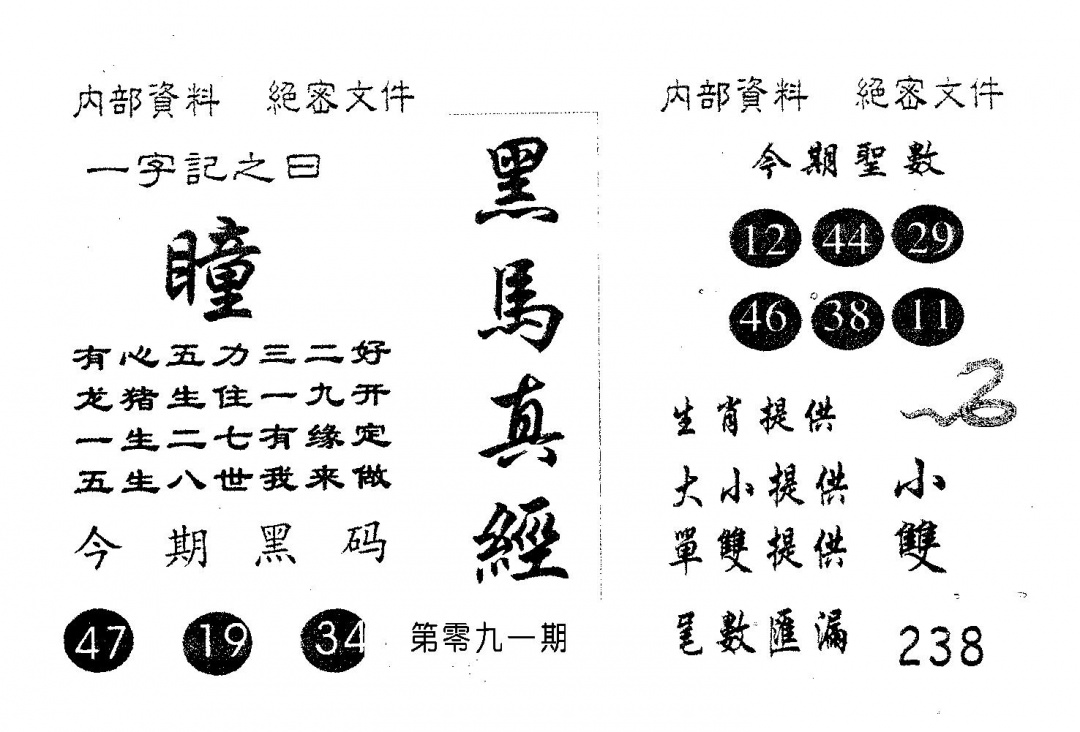 内部資料 絕密文件
一字記之曰
瞳
有心五力三二好
龙猪生住一九开
一生二七有缘定
五生八世我来做
今期黑码
47 19 34
黑馬真經
第零九一期
内部資料 絕密文件
今期聖數
12 44 29
46 38 11
生肖提供
大小提供 小
單雙提供 雙
尾數匯漏 238